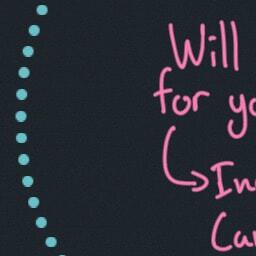 Will
for yo
In
Car